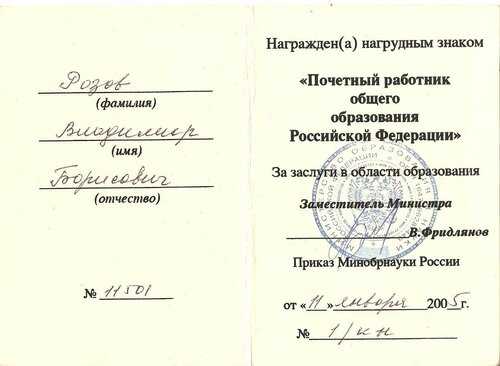 Розов
(фамилия)
Владимир
(имя)
Борисович
(отчество)
№ 11501
Награжден(а) нагрудным знаком
«Почетный работник
общего
образования
Российской Федерации»
За заслуги в области образования
Заместитель Министра
В.Фридлянов
Приказ Минобрнауки России
от «11» января 2005г.
№ 1/кн